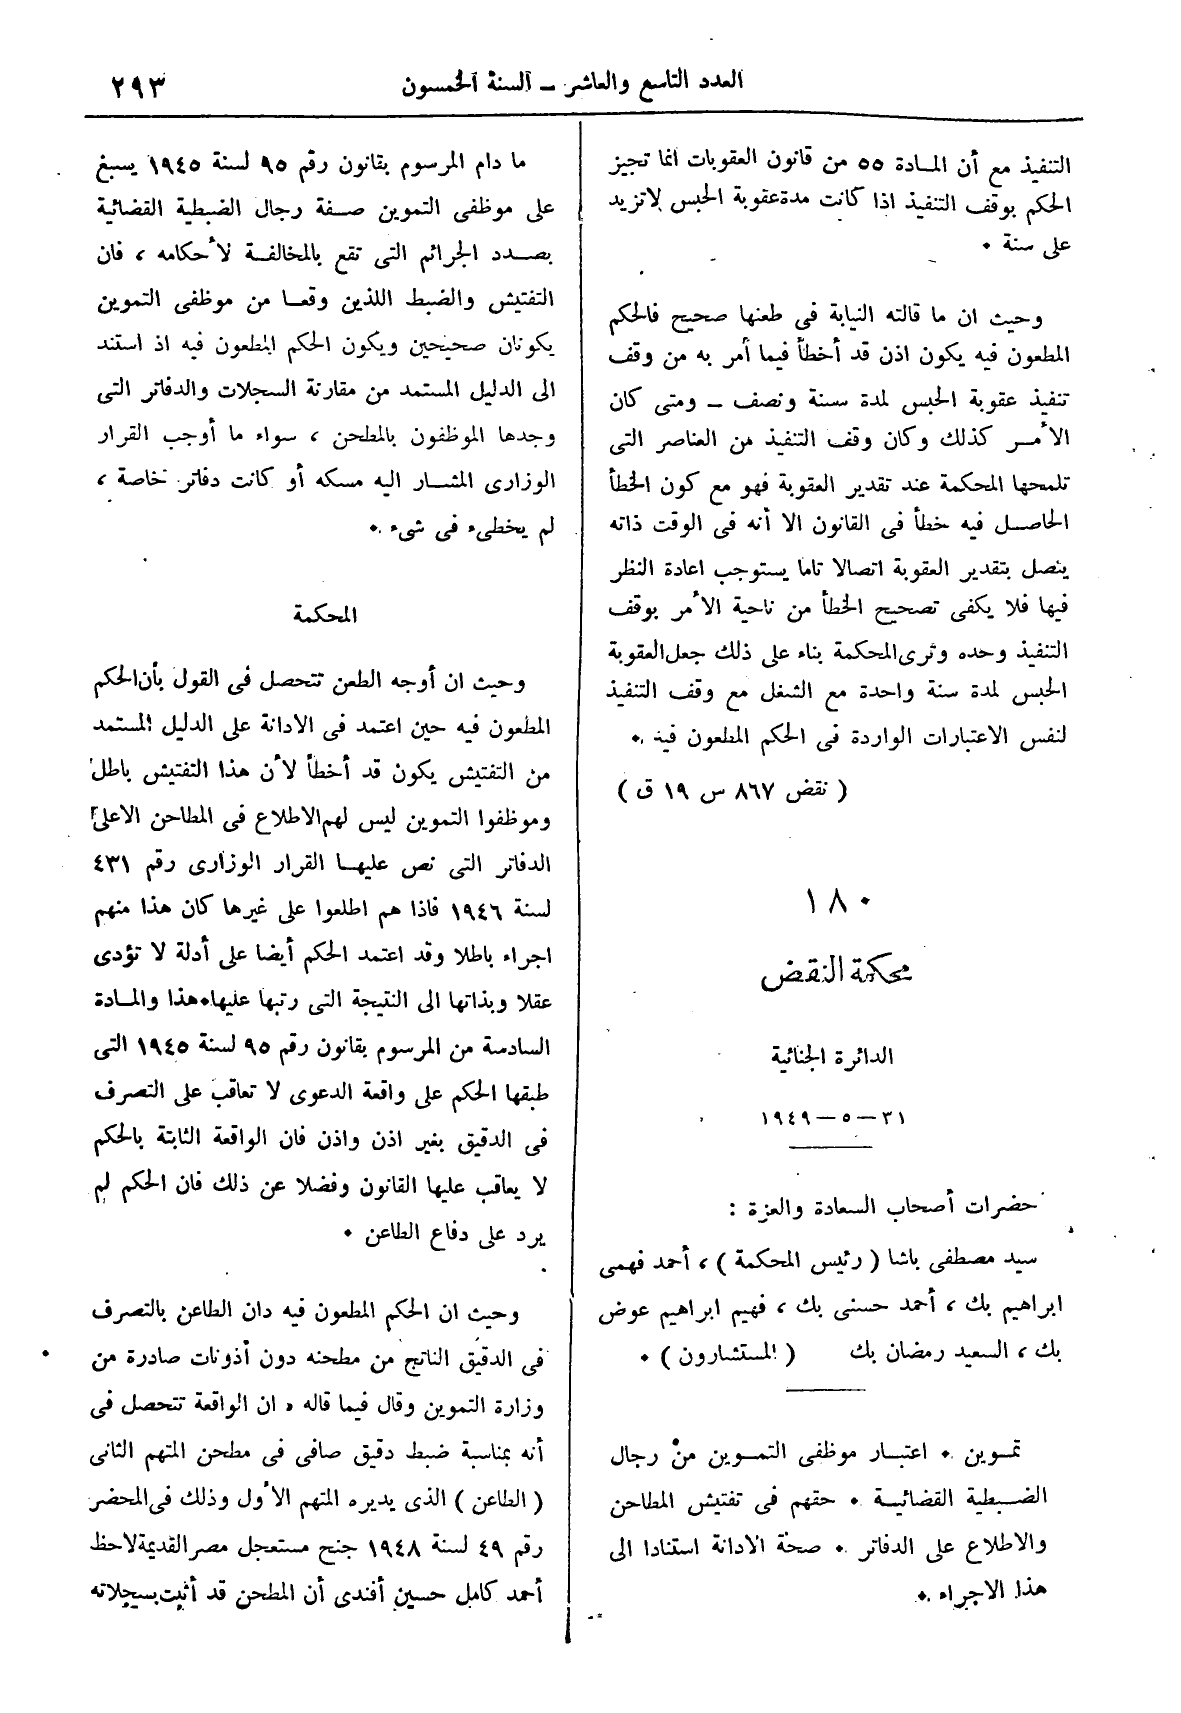 العدد التاسع والعاشر – السنة الخمسون
٢٩٣
التنفيذ مع أن المادة ٥٥ من قانون العقوبات انما تجيز
الحكم بوقف التنفيذ اذا كانت مدة عقوبة الحبس لا تزيد
على سنة ٠
وحيث ان ما قالته النيابة فى طعنها صحيح فالحكم
المطعون فيه يكون اذن قد أخطأ فيما أمر به من وقف
تنفيذ عقوبة الحبس لمدة سنة ونصف – ومتى كان
الأمر كذلك وكان وقف التنفيذ من العناصر التى
تلمحها المحكمة عند تقدير العقوبة فهو مع كون الخطأ
الحاصل فيه خطأ فى القانون الا أنه فى الوقت ذاته
يتصل بتقدير العقوبة اتصالا تاما يستوجب اعادة النظر
فيها فلا يكفى تصحيح الخطأ من ناحية الأمر بوقف
التنفيذ وحده وترى المحكمة بناء على ذلك جعل العقوبة
الحبس لمدة سنة واحدة مع الشغل مع وقف التنفيذ
لنفس الاعتبارات الواردة فى الحكم المطعون فيه ٠
( نقض ٨٦٧ س ١٩ ق )
١٨٠
محكمة النقض
الدائرة الجنائية
٣١ – ٥ – ١٩٤٩
حضرات أصحاب السعادة والعزة :
سيد مصطفى باشا ( رئيس المحكمة ) ، أحمد فهمى
ابراهيم بك ، أحمد حسنى بك ، فهيم ابراهيم عوض
بك ، السعيد رمضان بك ( المستشارون ) ٠
تموين ٠ اعتبار موظفى التموين من رجال
الضبطية القضائية ٠ حقهم فى تفتيش المطاحن
والاطلاع على الدفاتر ٠ صحة الادانة استنادا الى
هذا الاجراء ٠
ما دام المرسوم بقانون رقم ٩٥ لسنة ١٩٤٥ يسبغ
على موظفى التموين صفة رجال الضبطية القضائية
بصدد الجرائم التى تقع بالمخالفة لأحكامه ، فان
التفتيش والضبط اللذين وقعا من موظفى التموين
يكونان صحيحين ويكون الحكم المطعون فيه اذ استند
الى الدليل المستمد من مقارنة السجلات والدفاتر التى
وجدها الموظفون بالمطحن ، سواء ما أوجب القرار
الوزارى المشار اليه مسكه أو كانت دفاتر خاصة ،
لم يخطىء فى شىء ٠
المحكمة
وحيث ان أوجه الطعن تتحصل فى القول بأن الحكم
المطعون فيه حين اعتمد فى الادانة على الدليل المستمد
من التفتيش يكون قد أخطأ لأن هذا التفتيش باطل
وموظفوا التموين ليس لهم الاطلاع فى المطاحن الا على
الدفاتر التى نص عليها القرار الوزارى رقم ٤٣١
لسنة ١٩٤٦ فاذا هم اطلعوا على غيرها كان هذا منهم
اجراء باطلا وقد اعتمد الحكم أيضا على أدلة لا تؤدى
عقلا وبذاتها الى النتيجة التى رتبها عليها٠هذا والمادة
السادسة من المرسوم بقانون رقم ٩٥ لسنة ١٩٤٥ التى
طبقها الحكم على واقعة الدعوى لا تعاقب على التصرف
فى الدقيق بغير اذن واذن فان الواقعة الثابتة بالحكم
لا يعاقب عليها القانون وفضلا عن ذلك فان الحكم لم
يرد على دفاع الطاعن ٠
وحيث ان الحكم المطعون فيه دان الطاعن بالتصرف
فى الدقيق الناتج من مطحنه دون أذونات صادرة من
وزارة التموين وقال فيما قاله ، ان الواقعة تتحصل فى
أنه بمناسبة ضبط دقيق صافى فى مطحن المتهم الثانى
( الطاعن ) الذى يديره المتهم الأول وذلك فى المحضر
رقم ٤٩ لسنة ١٩٤٨ جنح مستعجل مصر القديمة لاحظ
أحمد كامل حسين أفندى أن المطحن قد أثبت بسجلاته